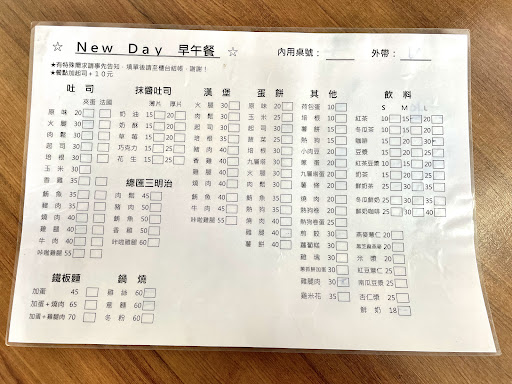 ☆ New Day 早午餐 ☆
內用桌號： 外帶：
★有特殊需求請事先告知，填單後請至櫃台結帳，謝謝！
★餐點加起司+10元
吐司
夾蛋 法國
原味 20
肉鬆 30
起司 30
培根 30
玉米 30
香雞 35
鮪魚 35
豬肉 35
燒肉 40
雞腿 40
牛肉 40
咔啦雞腿 55
抹醬吐司
薄片 厚片
奶油 15 20
奶酥 15 20
草莓 15 20
巧克力 15 25
花生 15 25
總匯三明治
肉鬆 45
豬肉 50
鮪魚 50
香雞 50
咔啦雞腿 60
漢堡
火腿 30
肉鬆 30
起司 30
培根 35
豬肉 40
香雞 40
雞腿 40
燒肉 40
鮪魚 40
牛肉 40
咔啦雞腿 55
蛋餅
原味 20
玉米 25
起司 30
蔬菜 25
培根 30
九層塔 30
火腿 30
肉鬆 30
鮪魚 35
熱狗 35
燒肉 40
雞腿 40
薯餅 40
其他
荷包蛋 10
培根 10
薯餅 15
熱狗 15
小肉豆 20
蔥蛋 20
九層塔蛋 20
薯條 30
燒肉 20
熱狗卷 20
熱狗卷蛋 25
煎餃 30
蘿蔔糕 30
雞塊 30
雞腿肉 30
雞米花 35
飲料
S M L
紅茶 10 15 20
冬瓜茶 10 15 20
咖啡 15 20
豆漿 15 20 25
紅茶豆漿 10 15 20
奶茶 15 20 25
鮮奶茶 25 30 35
冬瓜鮮奶 25 30 35
鮮奶咖啡 25 30 40
燕麥薏仁 20
米漿 20
紅豆薏仁 25
南瓜豆漿 25
杏仁漿 25
鮮奶 18
鐵板麵
加蛋 45
加蛋+燒肉 65
加蛋+雞腿肉 70
鍋燒
雞絲 60
意麵 60
冬粉 60